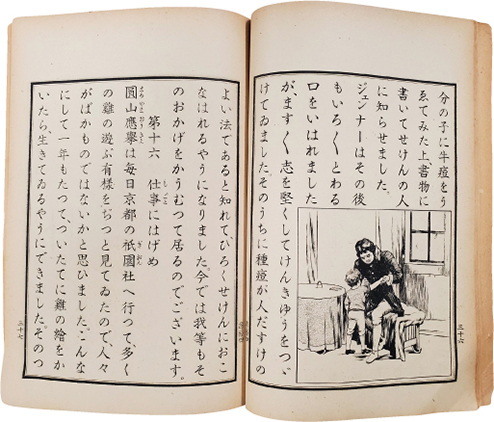 分の子に牛痘をう
ゑてみた上書物に
書いてせけんの人
に知らせました。
ジェンナーはその後
もいろ〳〵とわる
口をいはれました
が、ます〳〵志を堅くしてけんきゆうをつゞ
けてゐました。そのうちに種痘が人だすけの
三十六
よい法であると知れて、ひろくせけんにおこ
なはれるやうになりました。今では我等もそ
のおかげをかうむつて居るのでございます。
第十六 仕事にはげめ
圓山應擧は毎日京都の祇園社へ行つて、多く
の雞の遊ぶ有樣をぢつと見てゐたので、人々
がばかものではないかと思ひました。こんな
にして一年もたつて、ついたてに雞の繪をか
いたら、生きてゐるやうにできました。そのつ
三十七